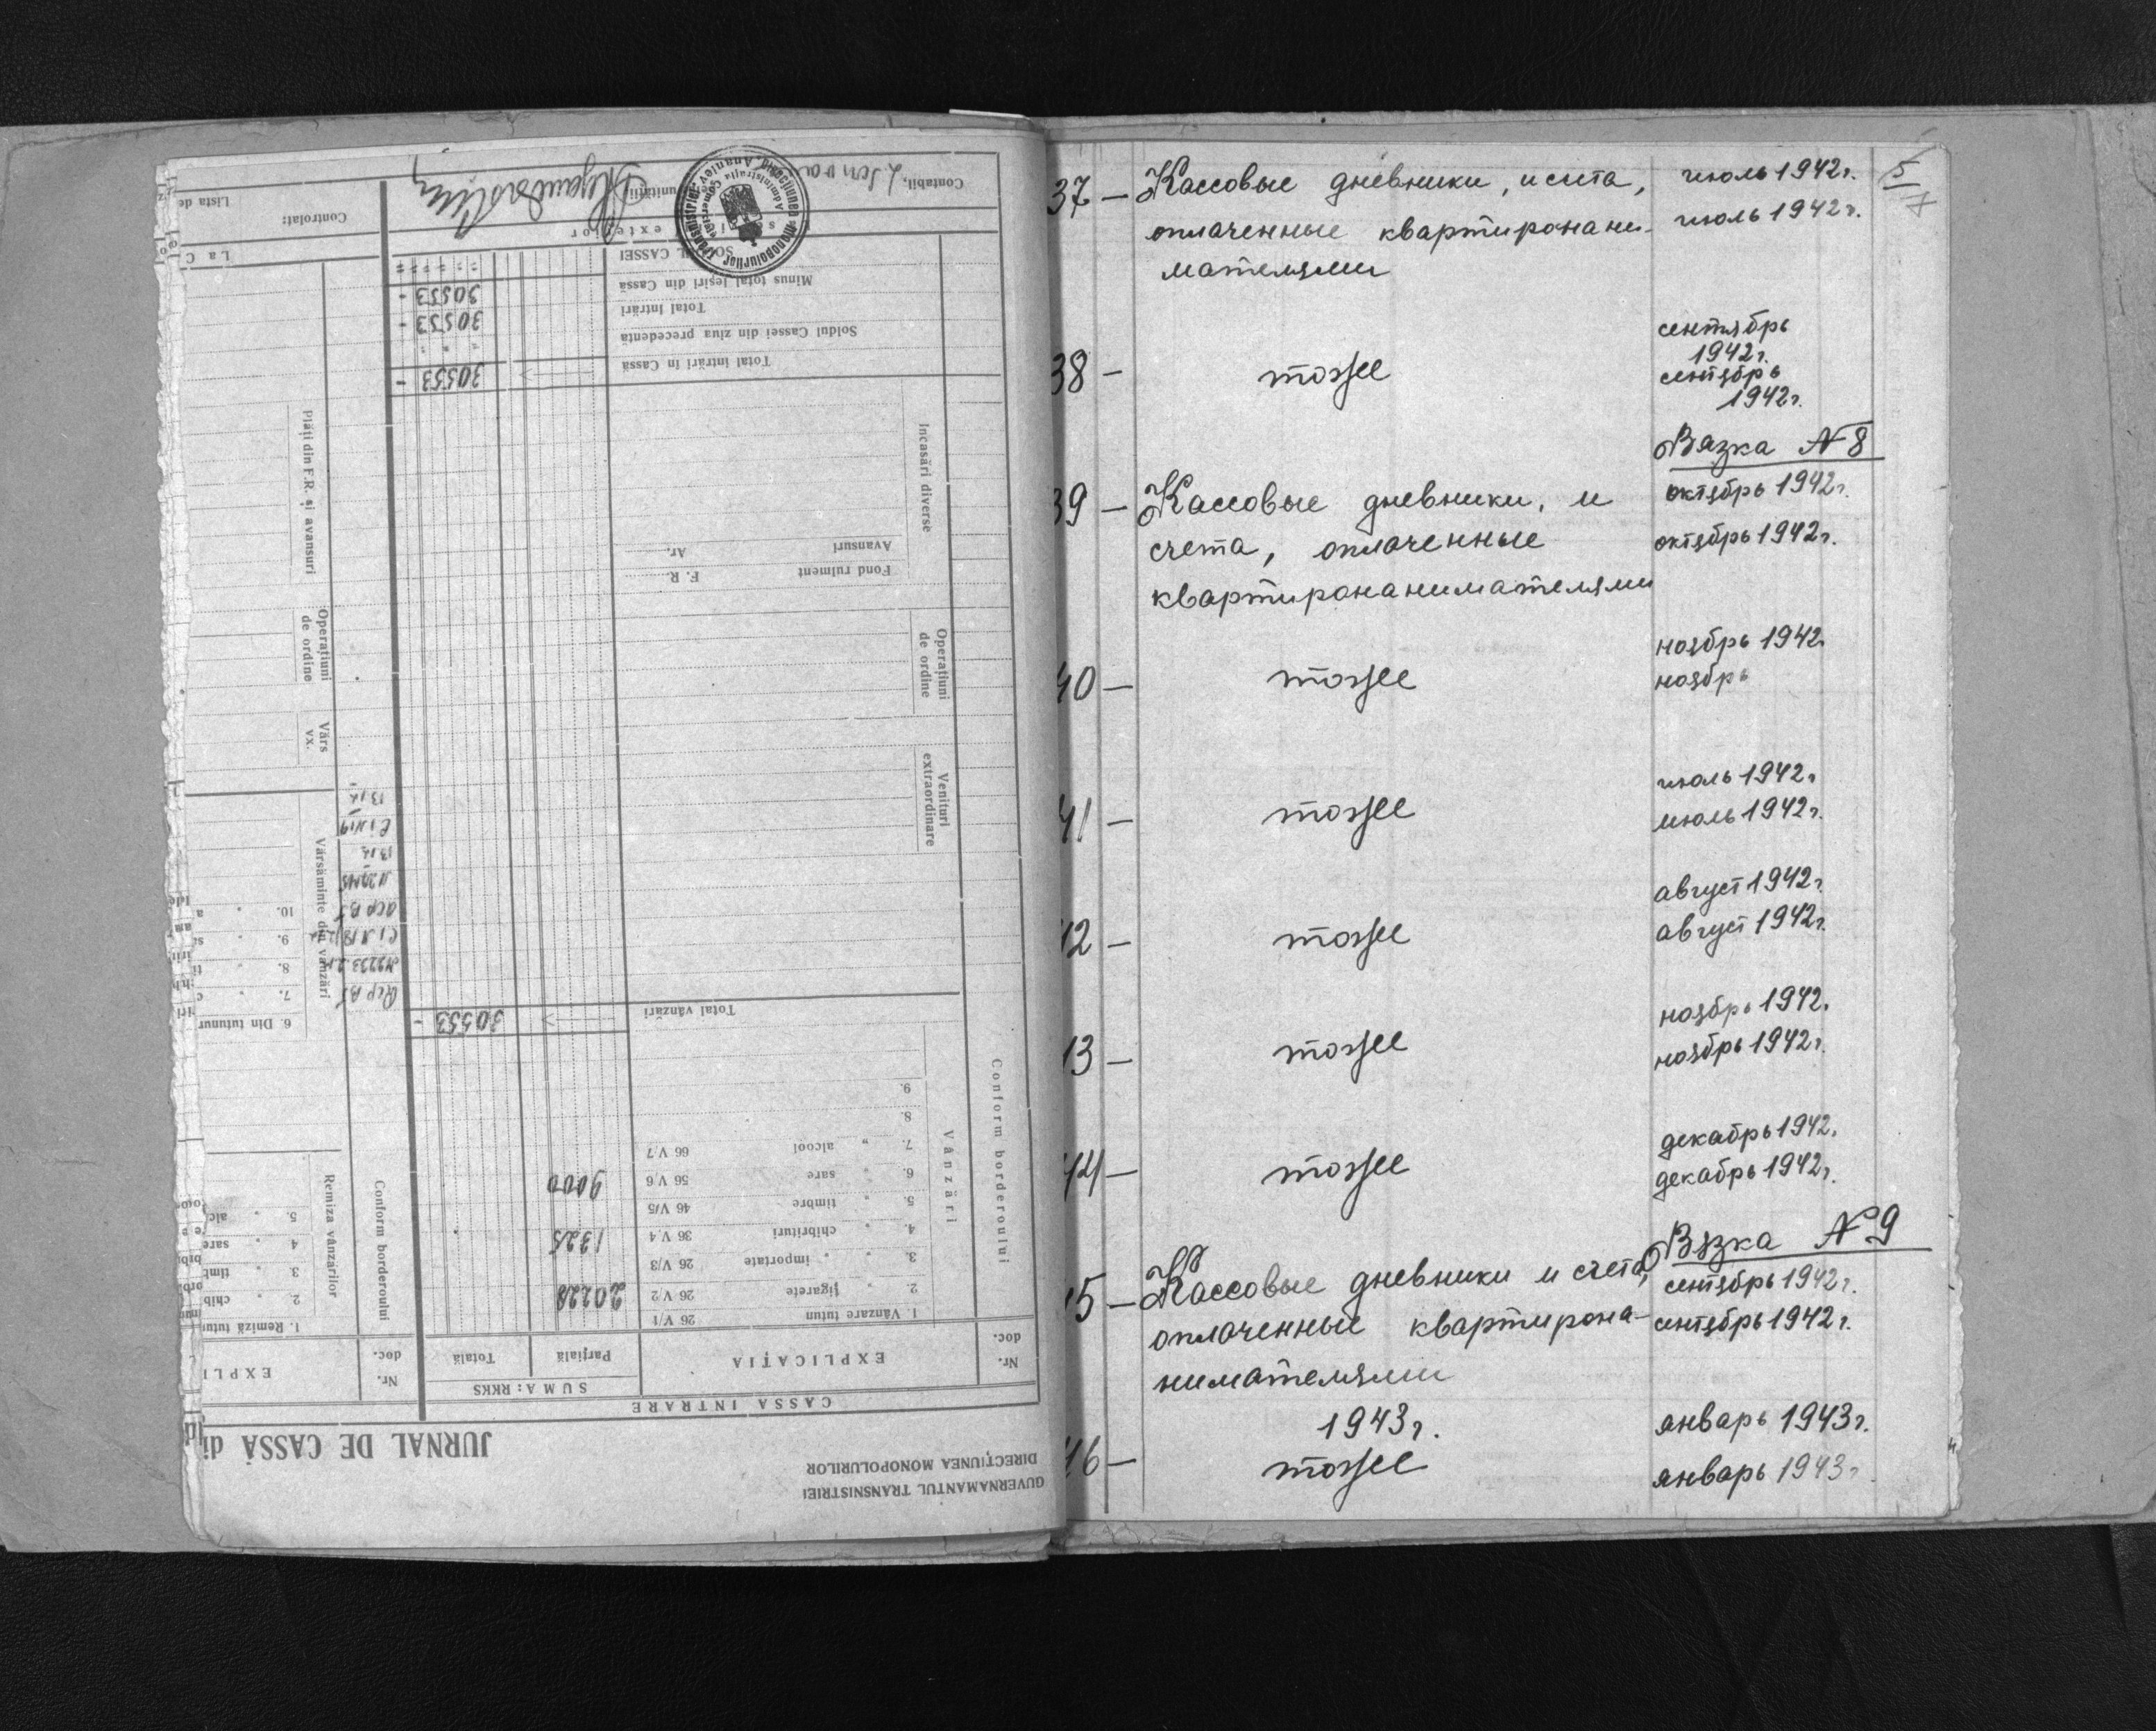 GUVERNAMANTUL TRANSNISTRIEI
DIRECŢIUNEA MONOPOLURILOR
JURNAL DE CASSĂ di
CASSA INTRARE
Nr. doc.
EXPLICAŢIA
SUMA: RKKS
Parţială
Totală
Conform borderoului
Vânzări
1 Vânzare tutun 26 V/1
2 „ ţigarete 26 V 2 20228
3. „ „ importate 26 V/3
4. „ chibrituri 36 V.4 1325
5. „ timbre 46 V/5
6. „ sare 56 V.6 9000
7. „ alcool 66 V.7
8.
9.
Total vânzări 30553 -
Venituri extraordinare
Operaţiuni de ordine
Incasări diverse
Fond rulment F. R.
Avansuri Av.
Total intrări în Cassă 30553 -
Soldul Cassei din ziua precedentă
Total intrări 30553 -
Minus total ieşiri din Cassă 30553 -
SOLDUL CASSEI
Contabil,
Nr. doc.
EXPLI
Conform borderoului
Remiza vânzărilor
1. Remiză tutu
2. „ chib
3 „ timb
4 „ sare
5. „ alc
Vărsăminte din vânzări
6. Din tutunur
7. „
8. „
9. „
10. „
Vărs
Operaţiuni de ordine
Plăţi din F.R. şi avansuri
La C
Controlat:
Lista de
37 — Кассовые дневники, и счета, июль 1942г. 5
оплаченные квартиронани- июль 1942г.
мателями
сентябрь
1942г.
38 — тоже сентябрь
1942г.
Вязка № 8
39 — Кассовые дневники, и октябрь 1942г.
счета, оплаченные октябрь 1942г.
квартиронанимателями
ноябрь 1942
40 — тоже ноябрь
июль 1942г
41 — тоже июль 1942г.
август 1942г.
42 — тоже август 1942г.
ноябрь 1942.
43 — тоже ноябрь 1942г.
декабрь 1942.
44 — тоже декабрь 1942г.
Вязка № 9
45 — Кассовые дневники и счета, сентябрь 1942г.
оплаченные квартирона- сентябрь 1942г.
нимателями
1943г. январь 1943г.
46 — тоже январь 1943г.